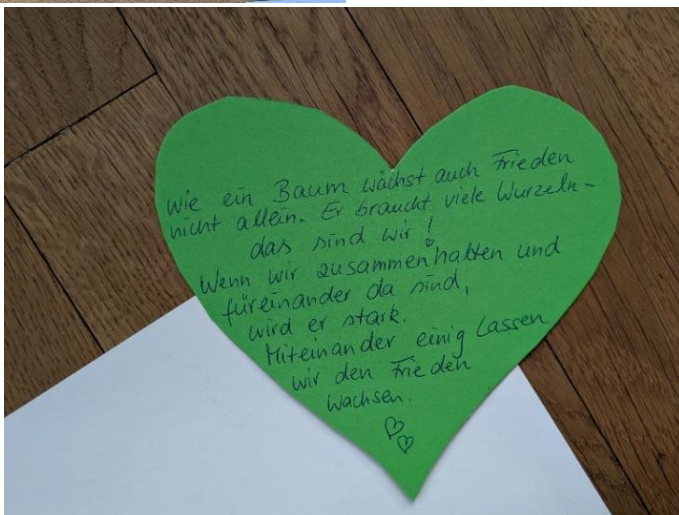 Wie ein Baum wächst auch Frieden
nicht allein. Er braucht viele Wurzeln-
das sind wir!
Wenn wir zusammenhalten und
füreinander da sind,
wird er stark.
Miteinander einig lassen
wir den Frieden
wachsen.